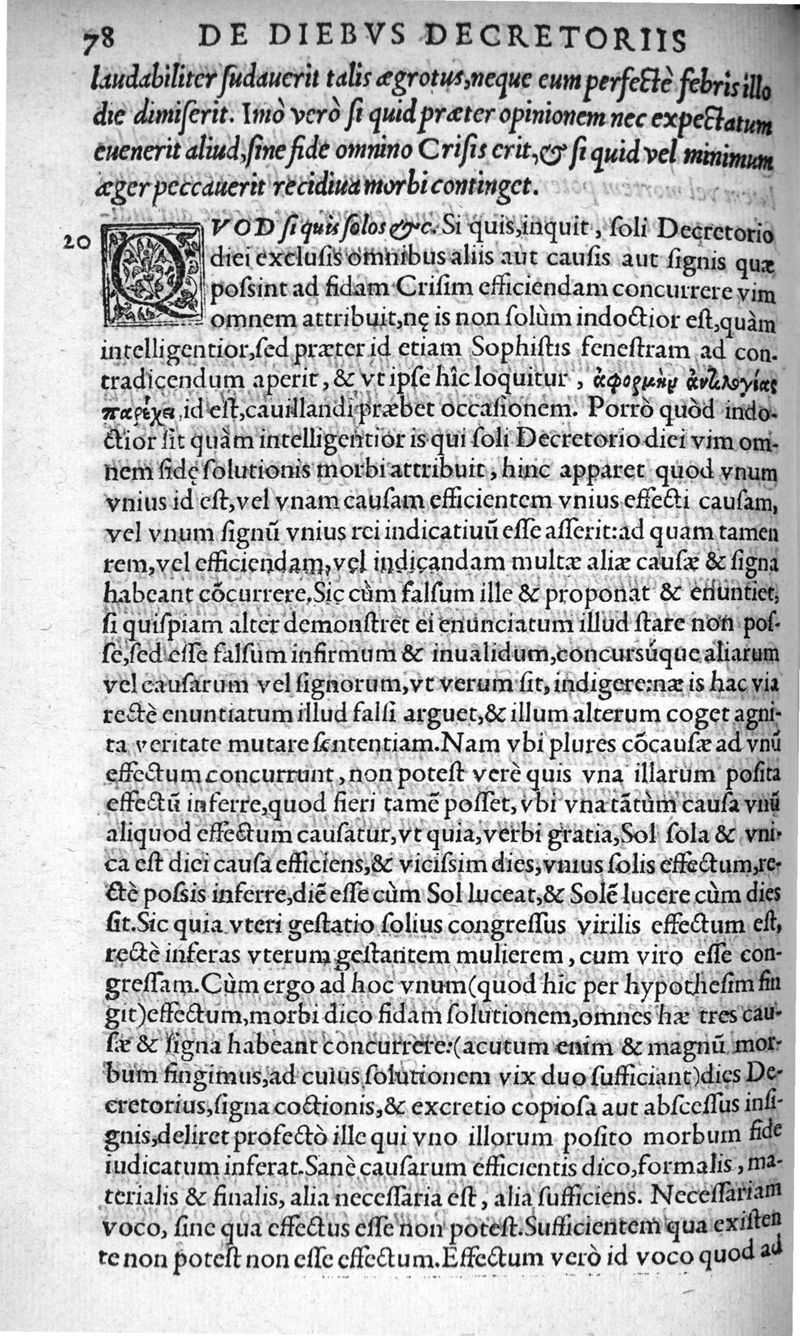 78 DE DIEBVS DECRETORIIS
laudabiliter ſudauerit talis ægrotus,neque eum perfectè febris illo
die dimiſerit. Imò verò ſi quid præter opinionem nec expectatum
euenerit aliud,ſine fide omnino Criſis erit,& ſi quid vel minimum
æger peccauerit recidiua morbi continget.
20 QVOD ſi quis ſolos &c. Si quis,inquit, ſoli Decretorio
diei excluſis omnibus aliis aut cauſis aut ſignis quæ
poſsint ad fidam Criſim efficiendam concurrere vim
omnem attribuit,nę is non ſolùm indoctior eſt,quàm
intelligentior,ſed præter id etiam Sophiſtis feneſtram ad con-
tradicendum aperit, & vt ipſe hîc loquitur, ἀφορμὴν ἀντιλογίας
παρέχει,id eſt,cauillandi præbet occaſionem. Porrò quòd indo-
ctior ſit quàm intelligentior is qui ſoli Decretorio diei vim om-
nem fidę ſolutionis morbi attribuit, hinc apparet quod vnum
vnius id eſt,vel vnam cauſam efficientem vnius effecti cauſam,
vel vnum ſignũ vnius rei indicatiuũ eſſe aſſerit:ad quam tamen
rem,vel efficiendam,vel indicandam multæ aliæ cauſæ & ſigna
habeant cõcurrere.Sic cùm falſum ille & proponat & enuntiet,
ſi quiſpiam alter demonſtret ei enunciatum illud ſtare non poſ-
ſe,ſed eſſe falſum infirmum & inualidum,concursúque aliarum
vel cauſarum vel ſignorum,vt verum ſit, indigere:næ is hac via
rectè enuntiatum illud falſi arguet,& illum alterum coget agni-
ta veritate mutare ſententiam.Nam vbi plures cõcauſæ ad vnũ
effectum concurrunt, non poteſt verè quis vna illarum poſita
effectũ inferre,quod fieri tamẽ poſſet, vbi vna tãtùm cauſa vnũ
aliquod effectum cauſatur,vt quia,verbi gratia,Sol ſola & vni-
ca eſt diei cauſa efficiens,& viciſsim dies,vnius ſolis effectum,re-
ctè poſsis inferre,diẽ eſſe cùm Sol luceat,& Solẽ lucere cùm dies
ſit.Sic quia vteri geſtatio ſolius congreſſus virilis effectum eſt,
rectè inferas vterum geſtantem mulierem, cum viro eſſe con-
greſſam.Cùm ergo ad hoc vnum(quod hic per hypotheſim fin
git)effectum,morbi dico fidam ſolutionem,omnes hæ tres cau-
ſæ & ſigna habeant concurrere:(acutum enim & magnũ mor-
bum fingimus,ad cuius ſolutionem vix duo ſufficiant)dies De-
cretorius,ſigna coctionis,& excretio copioſa aut abſceſſus inſi-
gnis,deliret profectò ille qui vno illorum poſito morbum fide
iudicatum inferat.Sanè cauſarum efficientis dico,formalis, ma-
terialis & finalis, alia neceſſaria eſt, alia ſufficiens. Neceſſariam
voco, ſine qua effectus eſſe non poteſt.Sufficientem qua exiſten
te non poteſt non eſſe effectum.Effectum verò id voco quod ad